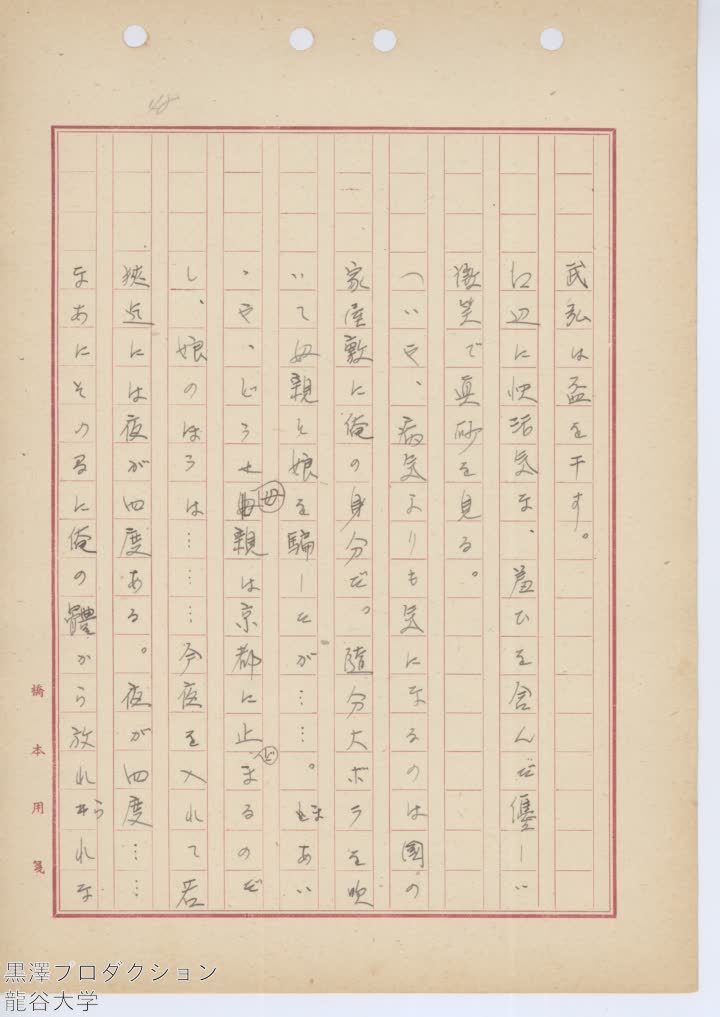 48
武弘は盃を干す。
口辺に快活気な、羞ひを含んだ優しい
微笑で真砂を見る。
(いや、病気よりも気になるのは國の
家屋敷に俺の身分だ。隨分大ボラを吹
いて母親と娘を騙したが……。まあい
ゝや、どうせ母親は京都に止どまるのだ
し、娘のはうは………今夜を入れて若
狭迄には夜が四度ある。夜が四度……
なあにその間に俺の體から放れられな
橋本用箋
黒澤プロダクション
龍谷大学